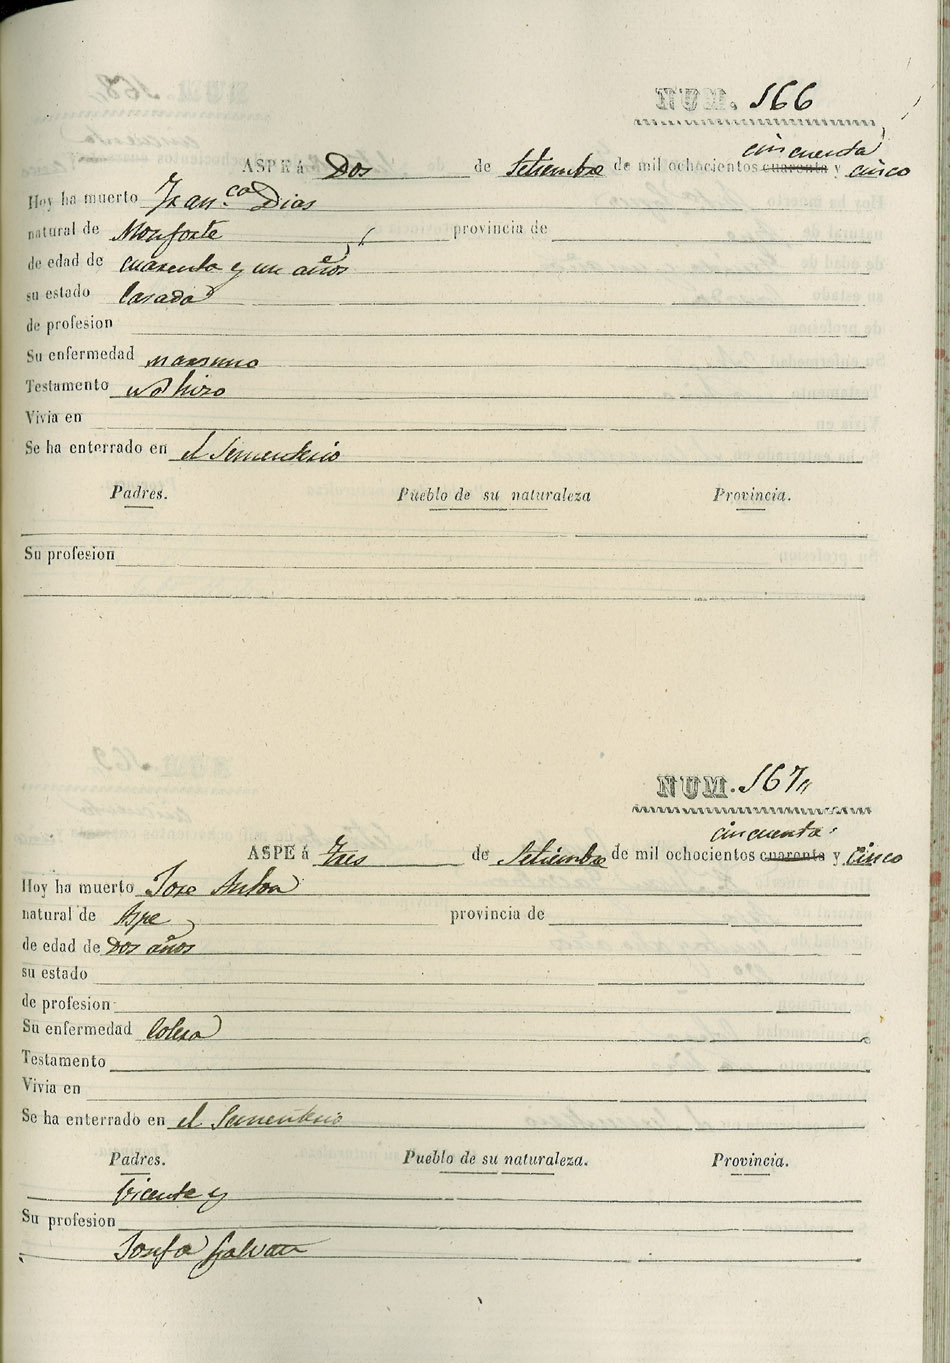 NUM. 166
cincuenta
ASPE á Dos de Setiembre de mil ochocientos cuarenta y cinco
Hoy ha muerto Fran.co Dias
natural de Monforte provincia de
de edad de cuarenta y un años
su estado Casado
de profesion
Su enfermedad
Testamento no hizo
Vivia en
Se ha enterrado en el Sementerio
Padres. Pueblo de su naturaleza Provincia.
Su profesion
NUM. 167
cincuenta
ASPE á tres de Setiembre de mil ochocientos cuarenta y cinco
Hoy ha muerto Jose Anton
natural de Aspe provincia de
de edad de Dos años
su estado
de profesion
Su enfermedad Colera
Testamento
Vivia en
Se ha enterrado en el Sementerio
Padres. Pueblo de su naturaleza. Provincia.
Vicente y
Su profesion
Josefa Galvan